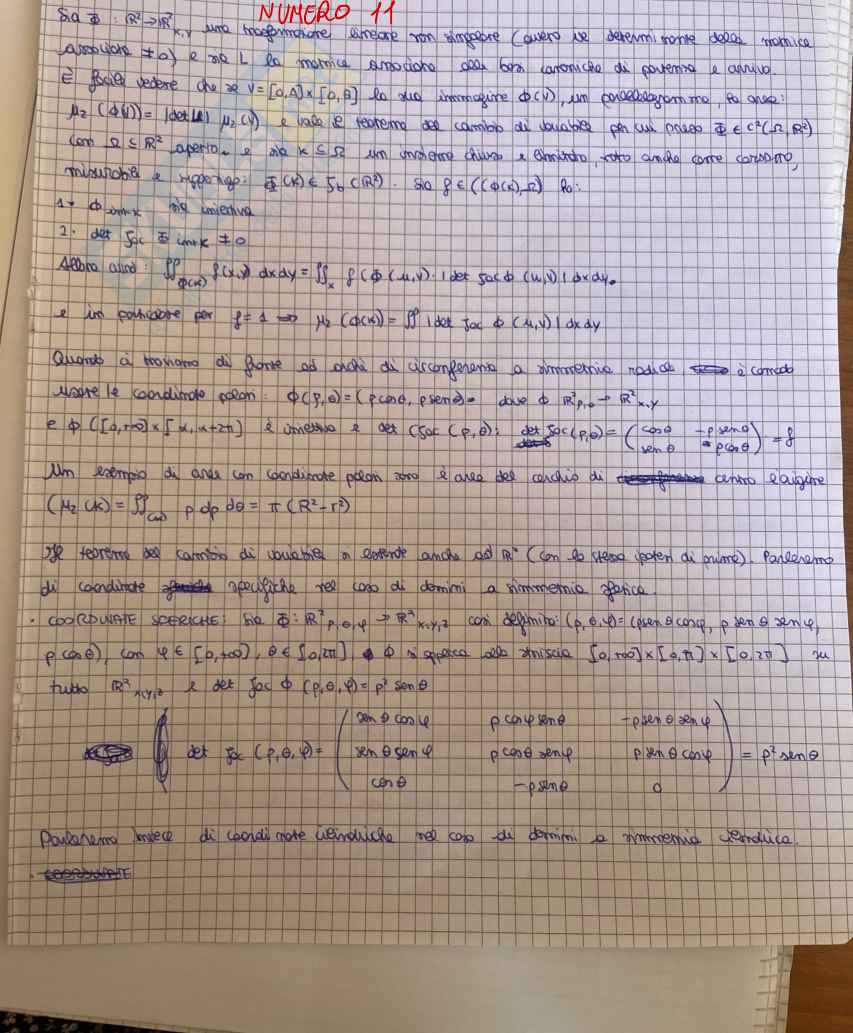 NUMERO 11
Sia Φ : ℝ² → ℝ²x,y una trasformazione lineare non singolare (ovvero se determinante della matrice
associata ≠ 0) e sia L la matrice associata alle basi canoniche di partenza e arrivo.
È facile vedere che se V = [0,A] × [0,B] la sua immagine Φ(V), un parallelogramma, ha area:
μ₂ (Φ(V)) = |det L| μ₂ (V) e vale il teorema del cambio di variabile per cui preso Φ ∈ C²(Ω, ℝ²)
con Ω ⊆ ℝ² aperto, e sia K ⊆ Ω un insieme chiuso e limitato, noto anche come compatto,
misurabile e suppongo: Φ(K) ∈ (ℝ²). Sia f ∈ C(Φ(K), Ω) Ho:
1. Φ int K sia iniettiva
2. det Jac Φ int K ≠ 0
Allora avrò: ∬Φ(K) f(x,y) dxdy = ∬K f(Φ(u,v)) · |det Jac Φ (u,v)| dxdy.
e in particolare per f = 1 ⇒ μ₂ (Φ(K)) = ∬ |det Jac Φ (u,v)| dxdy
Quando ci troviamo di fronte ad archi di circonferenza a simmetria radiale è comodo
usare le coordinate polari: Φ(ρ,θ) = (ρcosθ, ρsenθ) dove Φ ℝ²ρ,θ → ℝ²x,y
e Φ ([0,+∞) × [α, α+2π] è iniettiva e det (Jac (ρ,θ): det Jac(ρ,θ) = (cosθ -ρsenθ
senθ ρcosθ) = ρ
Un esempio di area con coordinate polari sarà è area del cerchio di centro l'origine
(μ₂ (K) = ∬ ρ dρ dθ = π (R²-r²)
Il teorema del cambio di variabile si estende anche ad ℝⁿ (con le stesse ipotesi di prima). Parleremo
di coordinate specifiche nel caso di domini a simmetria sferica.
· COORDINATE SFERICHE: Sia Φ: ℝ³ρ,θ,φ → ℝ³x,y,z così definito: (ρ,θ,φ) = (ρsenθcosφ, ρ senθ senφ,
ρcosθ), con φ ∈ [0,+∞), θ ∈ [0,2π], Φ si applica alla striscia [0,+∞) × [0,π] × [0,2π] su
tutto ℝ³x,y,z e det Jac Φ (ρ,θ,φ) = ρ² senθ
det Jac (ρ,θ,φ) = (senθcosφ ρcosφsenθ -ρsenθsenφ
senθsenφ ρcosθsenφ ρsenθcosφ
cosθ -ρsenθ 0) = ρ² senθ
Parleremo invece di coordinate cilindriche nel caso di domini a simmetria cilindrica.